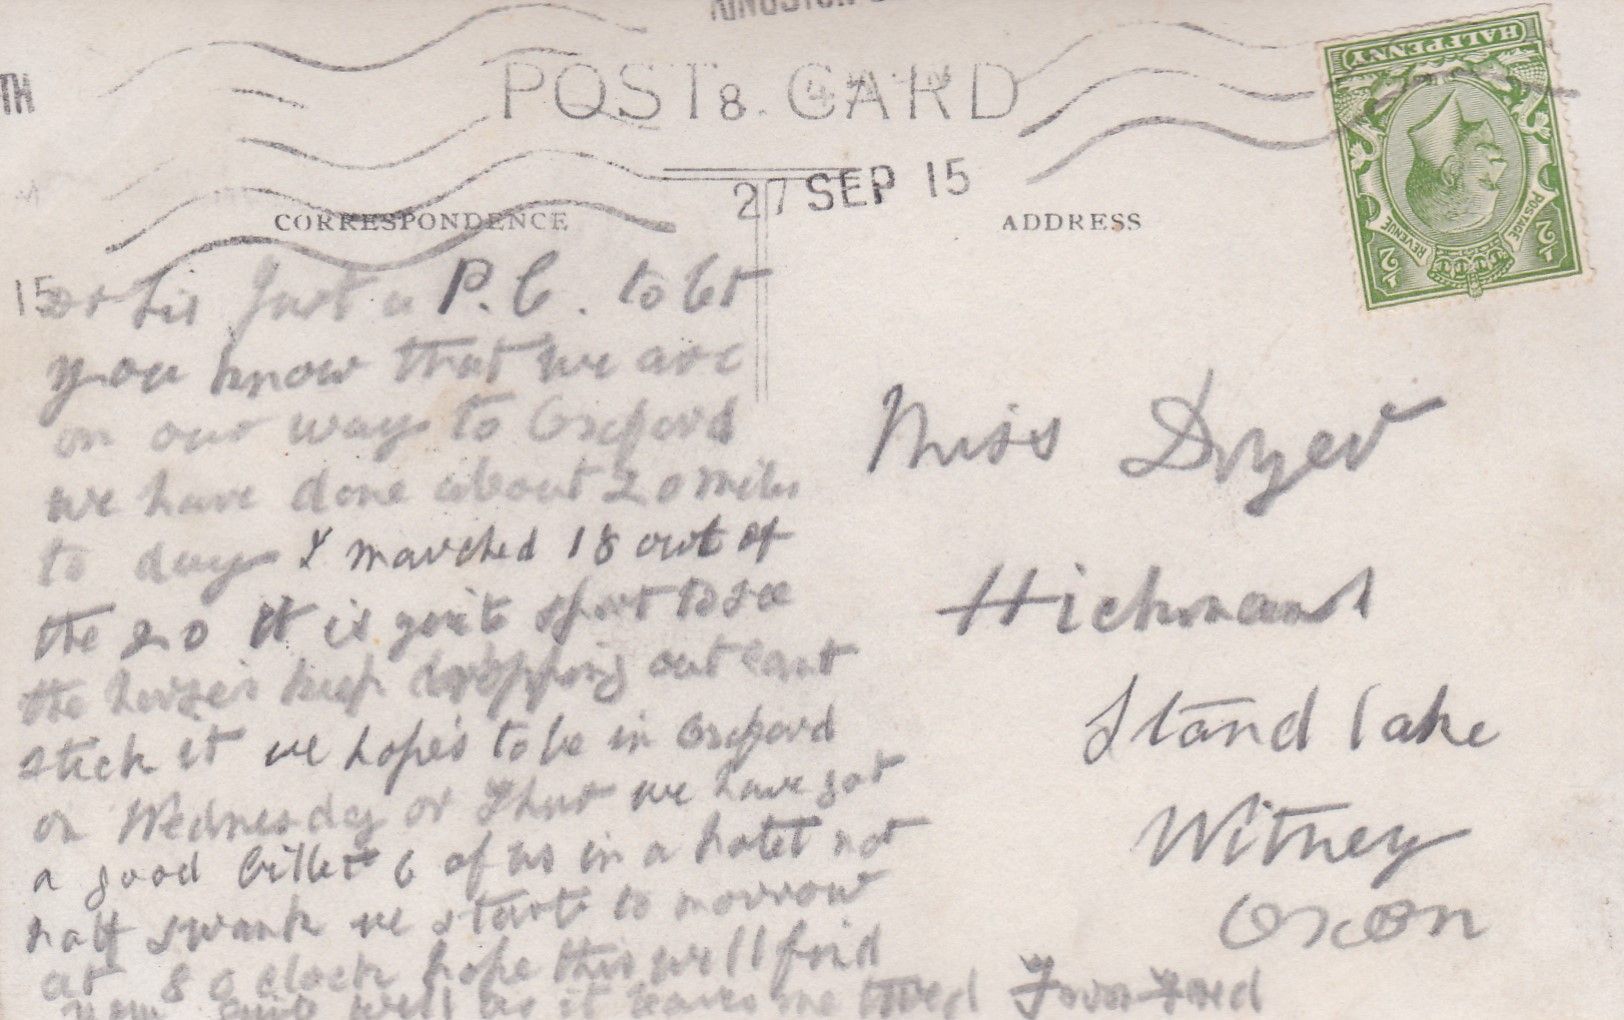 KINGSTON
TH
POST CARD
8.
27 SEP 15
CORRESPONDENCE
ADDRESS
HALFPENNY
POSTAGE
REVENUE
½ ½
15
Just a P.C. to let
you know that we are
on our way to Oxford
we have done about 20 miles
to day I marched 18 out of
the 20 It is quite sport to see
the horses keep dropping out cant
stick it we hopes to be in Oxford
on Wednesday or Thur we have got
a good billet 6 of us in a hotel not
half swank we starts to morrow
at 8 o clock hope this will find
you quite well as it leaves me tired From Fred
Miss Dryer
Hickmans
Standlake
Witney
Oxon